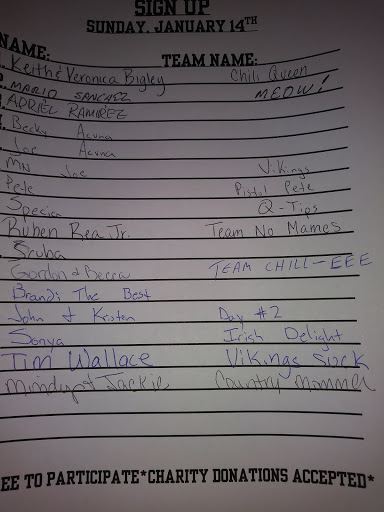 SIGN UP
SUNDAY, JANUARY 14TH
NAME: TEAM NAME:
Keith & Veronica Bigley Chili Queen
MARIO SANCHEZ MEOW!
ADRIEL RAMIREZ
Becky Acuna
Joe Acuna
MN Joe Vikings
Pete Pistol Pete
Specia Q-Tips
Ruben Rea Jr. Team No Mames
Scuba
Gordon & Becca TEAM CHILL-EEE
Brandi The Best
John & Kristen Day #2
Sonya Irish Delight
Tim Wallace Vikings Suck
Mindy & Jackie Country Momma
EE TO PARTICIPATE*CHARITY DONATIONS ACCEPTED*